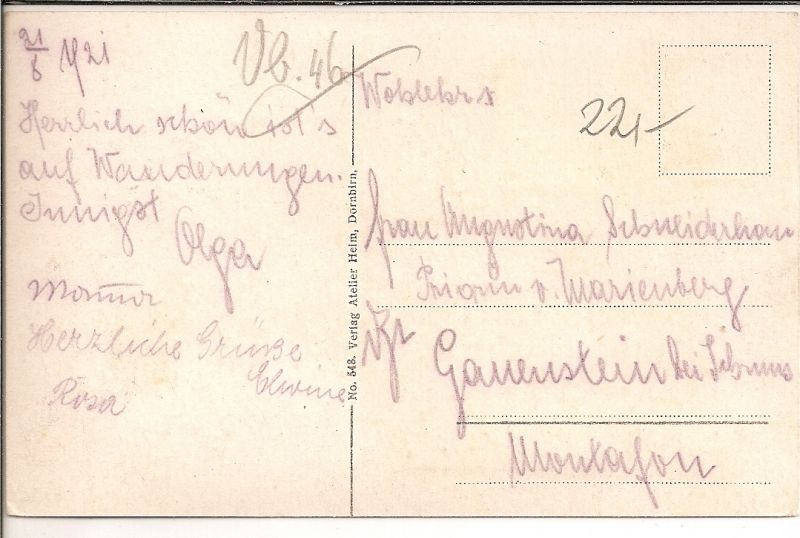 21/6 1921
Vb. 46
Herrlich schön ist's
auf Wanderungen.
Innigst
Olga
Mama
Herzliche Grüße
Elwine
Rosa
No. 548. Verlag Atelier Heim, Dornbirn,
22,-
Frau Augustina Schneiderhan
v. Marienberg
Gauenstein bei Schruns
Montafon